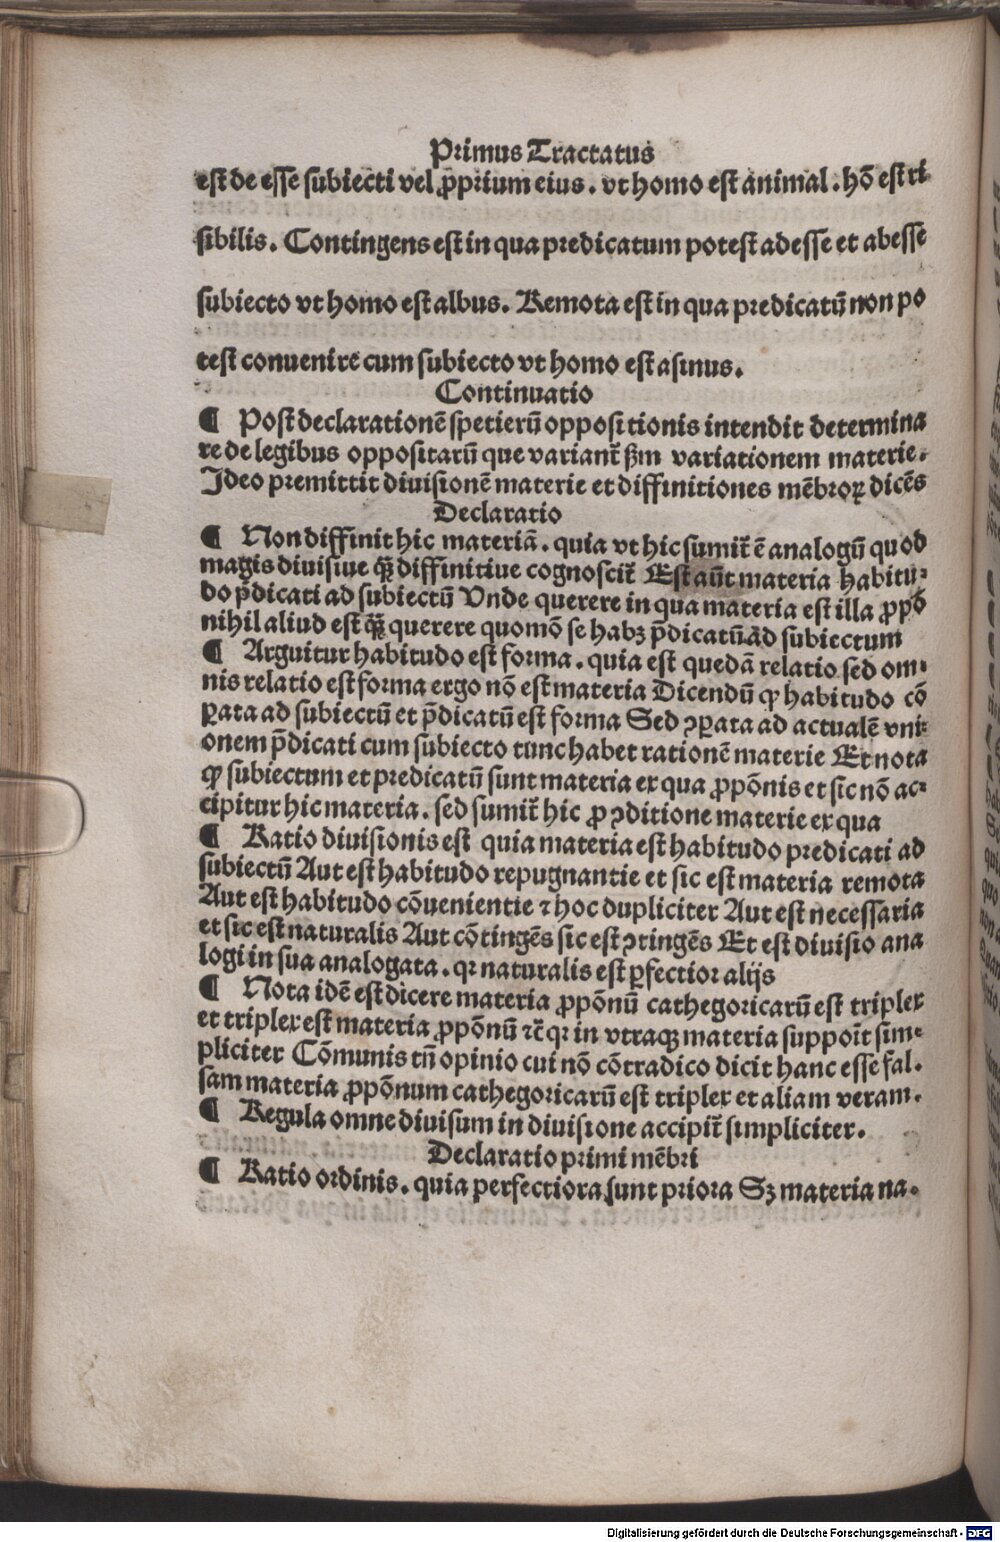 Primus Tractatus
est de esse subiecti vel ꝓpriium eius. vt homo est animal. hō est ri
sibilis. Contingens est in qua predicatum potest adesse et abesse
subiecto vt homo est albus. Remota est in qua predicatū non po
test convenire cum subiecto vt homo est asinus.
Continuatio
¶ Post declarationē specierū oppositionis intendit determina
re de legibus oppositarū que variant᷑ ẜm variationem materie.
Ideo premittit divisionē materie et diffinitiones mēbroꝝ dicēs
Declaratio
¶ Non diffinit hic materiā. quia vt hic sumit᷑ ē analogū quod
magis divisive qᷓꝫ diffinitive cognoscit᷑ Est aūt materia habitu⸗
do p̄dicati ad subiectū Vnde querere in qua materia est illa ꝓpō
nihil aliud est qᷓꝫ querere quomō se habꝫ p̄dicatū ad subiectum
¶ Arguitur habitudo est forma. quia est quedā relatio sed om⸗
nis relatio est forma ergo nō est materia Dicendū ꝙ habitudo cō
ꝑata ad subiectū et p̄dicatū est forma Sed ꝯꝑata ad actualē vni⸗
onem p̄dicati cum subiecto tunc habet rationē materie Et nota
ꝙ subiectum et predicatū sunt materia ex qua ꝓpōnis et sic nō ac⸗
cipitur hic materia. sed sumit᷑ hic ꝓ ꝯditione materie ex qua
¶ Ratio divisionis est quia materia est habitudo predicati ad
subiectū Aut est habitudo repugnantie et sic est materia remota
Aut est habitudo cōvenientie ⁊ hoc dupliciter Aut est necessaria
et sic est naturalis Aut cōtingēs sic est ꝯtingēs Et est divisio ana
logi in sua analogata. qꝛ naturalis est ꝑfectior alijs
¶ Nota idē est dicere materia ꝓpōnū cathegoricarū est triplex
et triplex est materia ꝓpōnū ⁊c̄ qꝛ in vtraqꝫ materia suppoīt sim⸗
pliciter Cōmunis tn̄ opinio cui nō cōtradico dicit hanc esse fal.
sam materia ꝓpōnum cathegoricarū est triplex et aliam veram.
¶ Regula omne divisum in divisione accipit᷑ simpliciter.
Declaratio primi mēbri
¶ Ratio ordinis. quia perfectiora sunt priora Sꝫ materia na.
Digitalisierung gefördert durch die Deutsche Forschungsgemeinschaft - DFG